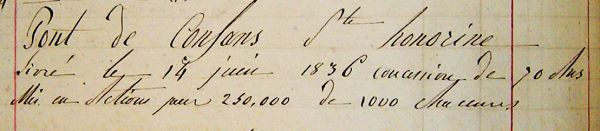 Pont de Conflans Ste honorine
livré le 14 juin 1836 concession de 70 Ans
Mis en Actions pour 250,000 de 1000 chacunes